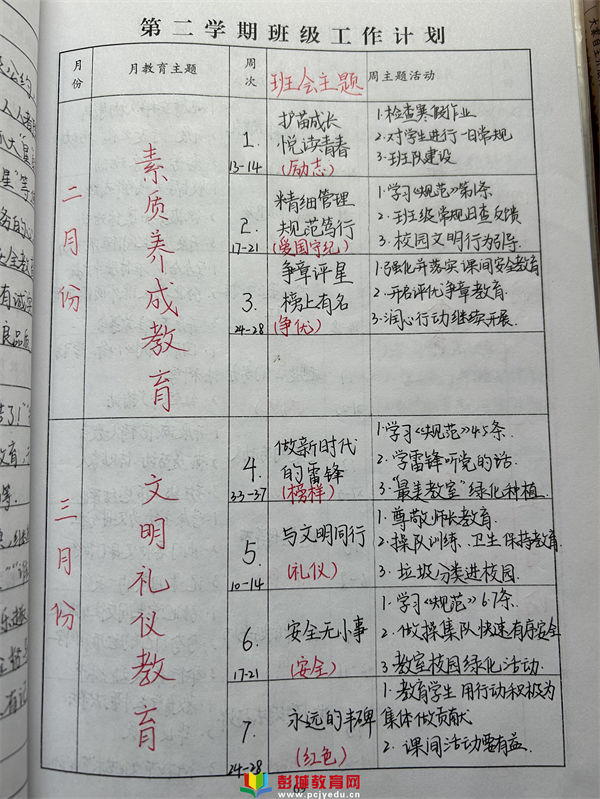 第二学期班级工作计划
月份 月教育主题 周次 班会主题 周主题活动
二月份
素质养成教育
1.
13-14
护苗成长
悦读青春
(励志)
1.检查寒假作业
2.对学生进行一日常规
3.班队建设
2.
17-21
精细管理
规范笃行
(爱国守纪)
1.学习《规范》第1条
2.班级常规自查反馈
3.校园文明行为引导.
3.
24-28
争章评星
榜上有名
(争优)
1.强化并落实课间安全教育
2.开启评优争章教育.
3.润心行动继续开展.
三月份
文明礼仪教育
4.
3.3-3.7
做新时代
的雷锋
(榜样)
1.学习《规范》4.5条.
2.学雷锋听党的话.
3."最美教室"绿化种植.
5.
10-14
与文明同行
(礼仪)
1.尊敬师长教育.
2.操队训练、卫生保持教育
3.垃圾分类进校园.
6.
17-21
安全无小事
(安全)
1.学习《规范》6.7条.
2.做操集队快速有序安全
3教室校园绿化活动.
7.
24-28
永远的丰碑
(红色)
1.教育学生用行动积极为
集体做贡献
2.课间活动要有益.
彭城教育网
www.pcjyedu.cn